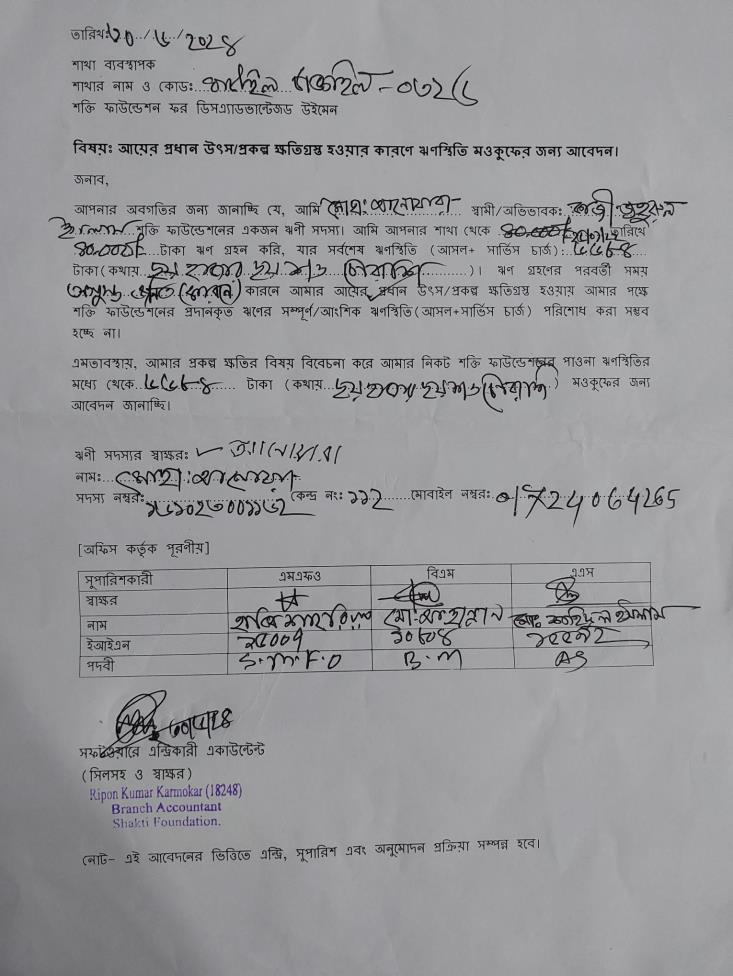 তারিখ: ২০/৬/২০২৪
শাখা ব্যবস্থাপক
শাখার নাম ও কোড: - ০৩২৬
শক্তি ফাউন্ডেশন ফর ডিসএ্যাডভান্টেজড উইমেন
বিষয়: আয়ের প্রধান উৎস/প্রকল্প ক্ষতিগ্রস্ত হওয়ার কারণে ঋণস্থিতি মওকুফের জন্য আবেদন।
জনাব,
আপনার অবগতির জন্য জানাচ্ছি যে, আমি মোছা: আনোয়ারা স্বামী/অভিভাবক: কাজী
ইসলাম শক্তি ফাউন্ডেশনের একজন ঋণী সদস্য। আমি আপনার শাখা থেকে তারিখে
৪০,০০০/- টাকা ঋণ গ্রহন করি, যার সর্বশেষ ঋণস্থিতি (আসল+ সার্ভিস চার্জ): ৬৬৮৪
টাকা (কথায় ছয় হাজার ছয় শত চৌরাশি)। ঋণ গ্রহণের পরবর্তী সময়
কারনে আমার আয়ের প্রধান উৎস/প্রকল্প ক্ষতিগ্রস্ত হওয়ায় আমার পক্ষে
শক্তি ফাউন্ডেশনের প্রদানকৃত ঋণের সম্পূর্ণ/আংশিক ঋণস্থিতি(আসল+সার্ভিস চার্জ) পরিশোধ করা সম্ভব
হচ্ছে না।
এমতাবস্থায়, আমার প্রকল্প ক্ষতির বিষয় বিবেচনা করে আমার নিকট শক্তি ফাউন্ডেশনের পাওনা ঋণস্থিতির
মধ্যে থেকে ৬৬৮৪ টাকা (কথায় ছয় হাজার ছয় শত চৌরাশি) মওকুফের জন্য
আবেদন জানাচ্ছি।
ঋণী সদস্যর স্বাক্ষর: আনোয়ারা
নাম: মোছা: আনোয়ারা
সদস্য নম্বর: কেন্দ্র নং: ১১২ মোবাইল নম্বর: 01724064265
[অফিস কর্তৃক পূরণীয়]
সুপারিশকারী এমএফও বিএম এএস
স্বাক্ষর
নাম মো: মান্নান মোঃ ইসলাম
ইআইএন ২৫০০৭ ১০৮০৪
পদবী S.M.F.O B.M AS
সফটওয়্যারে এন্ট্রিকারী একাউন্টেন্ট
(সিলসহ ও স্বাক্ষর)
Ripon Kumar Karmokar (18248)
Branch Accountant
Shakti Foundation.
নোট- এই আবেদনের ভিত্তিতে এন্ট্রি, সুপারিশ এবং অনুমোদন প্রক্রিয়া সম্পন্ন হবে।